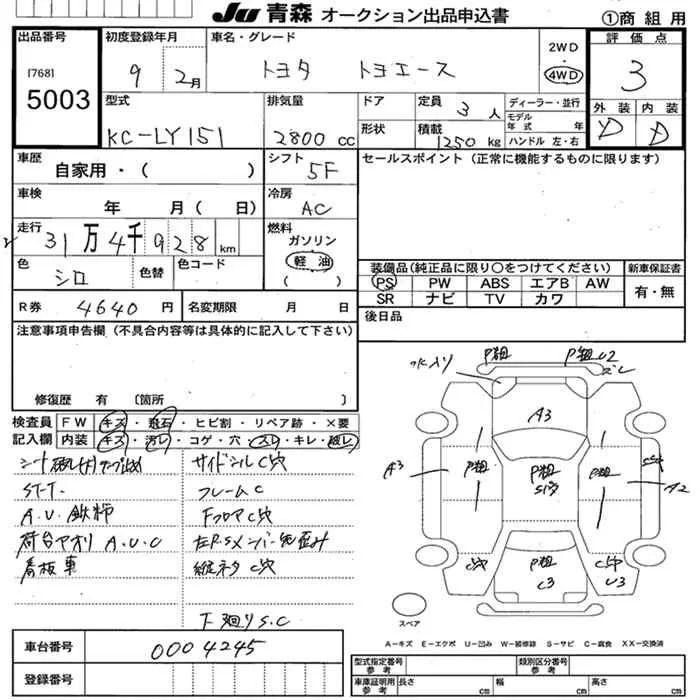 JU 青森 オークション出品申込書 ①商組用
出品番号 初度登録年月 車名・グレード 2WD・4WD 評価点
[768] 9 2月 トヨタ トヨエース 3
5003
型式 排気量 ドア 定員 3人 ディーラー・並行 外装 内装
KC-LY151 2800cc 形状 積載 1250kg モデル年式 年 ハンドル 左・右 D D
車歴 自家用・( ) シフト 5F セールスポイント (正常に機能するものに限ります)
車検 年 月( 日) 冷房 AC
走行 31万4千928km 燃料 ガソリン 軽油 ( )
色 シロ 色替 色コード 装備品(純正品に限り〇をつけてください) 新車保証書
PS PW ABS エアB AW 有・無
SR ナビ TV カワ
R券 4640円 名変期限 月 日 後日品
注意事項申告欄 (不具合内容等は具体的に記入して下さい)
修復歴 有 〔箇所 〕
検査員 FW キズ・飛石・ヒビ割・リペア跡・×要
記入欄 内装 キズ・汚レ・コゲ・穴・スレ・キレ・破レ
サイドシルC穴
ST-T. フレームC
A.U.鉄柿 FフロアC穴
荷台アオリ A.U.C
看板車 C穴
下廻りS.C
P粗 P粗U2
A3
A3 P粗 P粗 P粗 A2
S1穴
C穴 P粗 C穴
C3 U3
スペア
A-キズ E-エクボ U-凹み W-補修跡 S-サビ C-腐食 XX-交換済
車台番号 0004245
登録番号
型式指定番号 参考 類別区分番号 参考
車庫証明用 参考 長さ cm 幅 cm 高さ cm